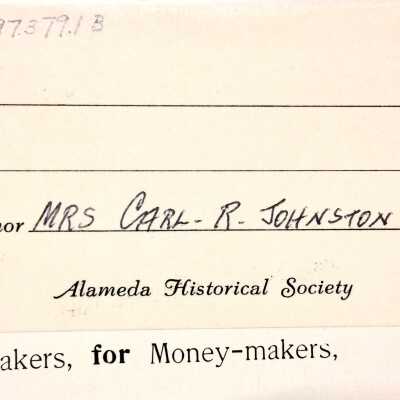 97.379.1 B
nor MRS CARL. R. JOHNSTON
Alameda Historical Society
akers, for Money-makers,